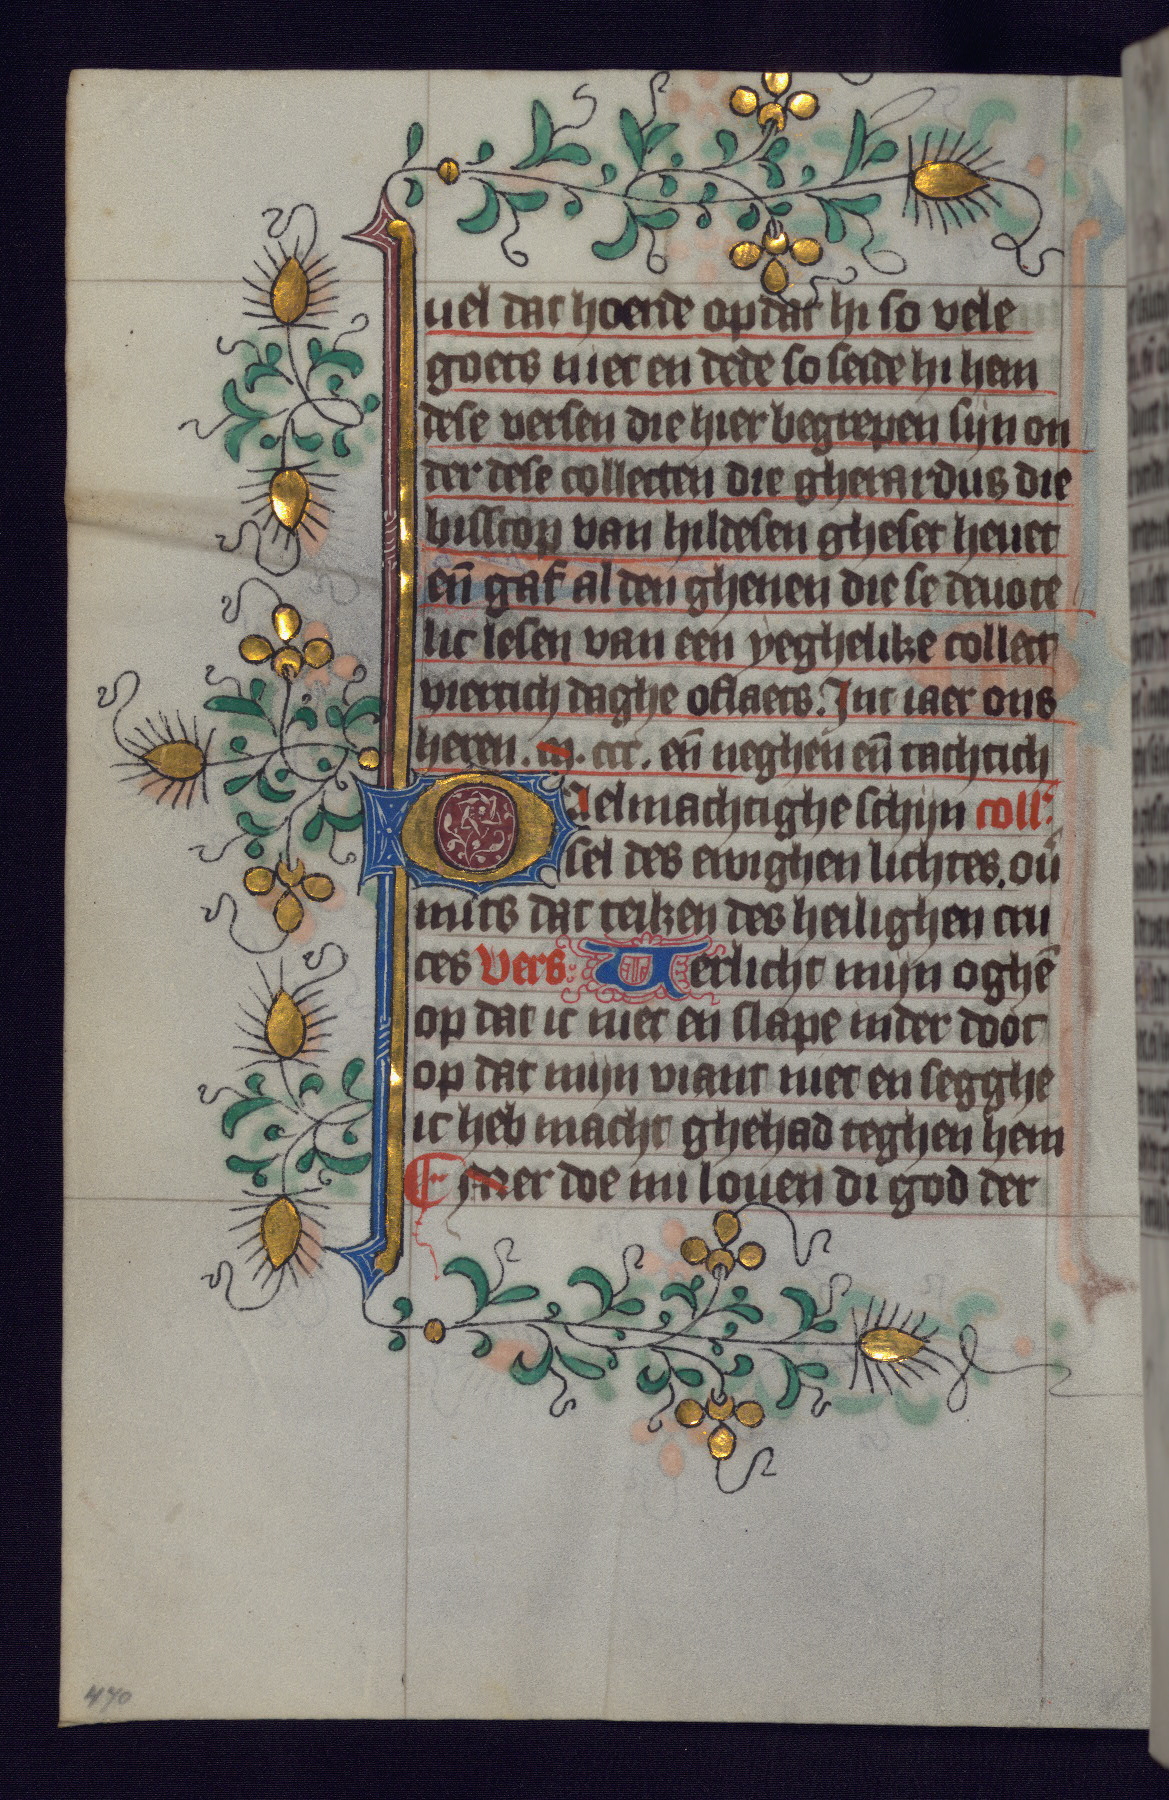 uel dat hoerde opdat hi so vele
goets niet en dede so seide hi hem
dese versen die hier begrepen sijn on
der dese collecten die gherardus die
bisscop van hildesen gheset heuet
en̄ gaf al den ghenen die se deuote
lic lesen van een yeghelike collect
viertich daghe oflaets. Int iaer ons
heren. m. ccc. en̄ neghen en̄ tachtich
O Aelmachtighe schijn coll'
sel des ewighen lichtes. ou̅
mits dat teiken des heilighen cru
ces Vers: Verlicht mijn oghē
op dat ic niet en slape inder doot
op dat mijn viant niet en segghe
ic heb macht ghehad teghen hem
Emer doe mi louen di god der
470